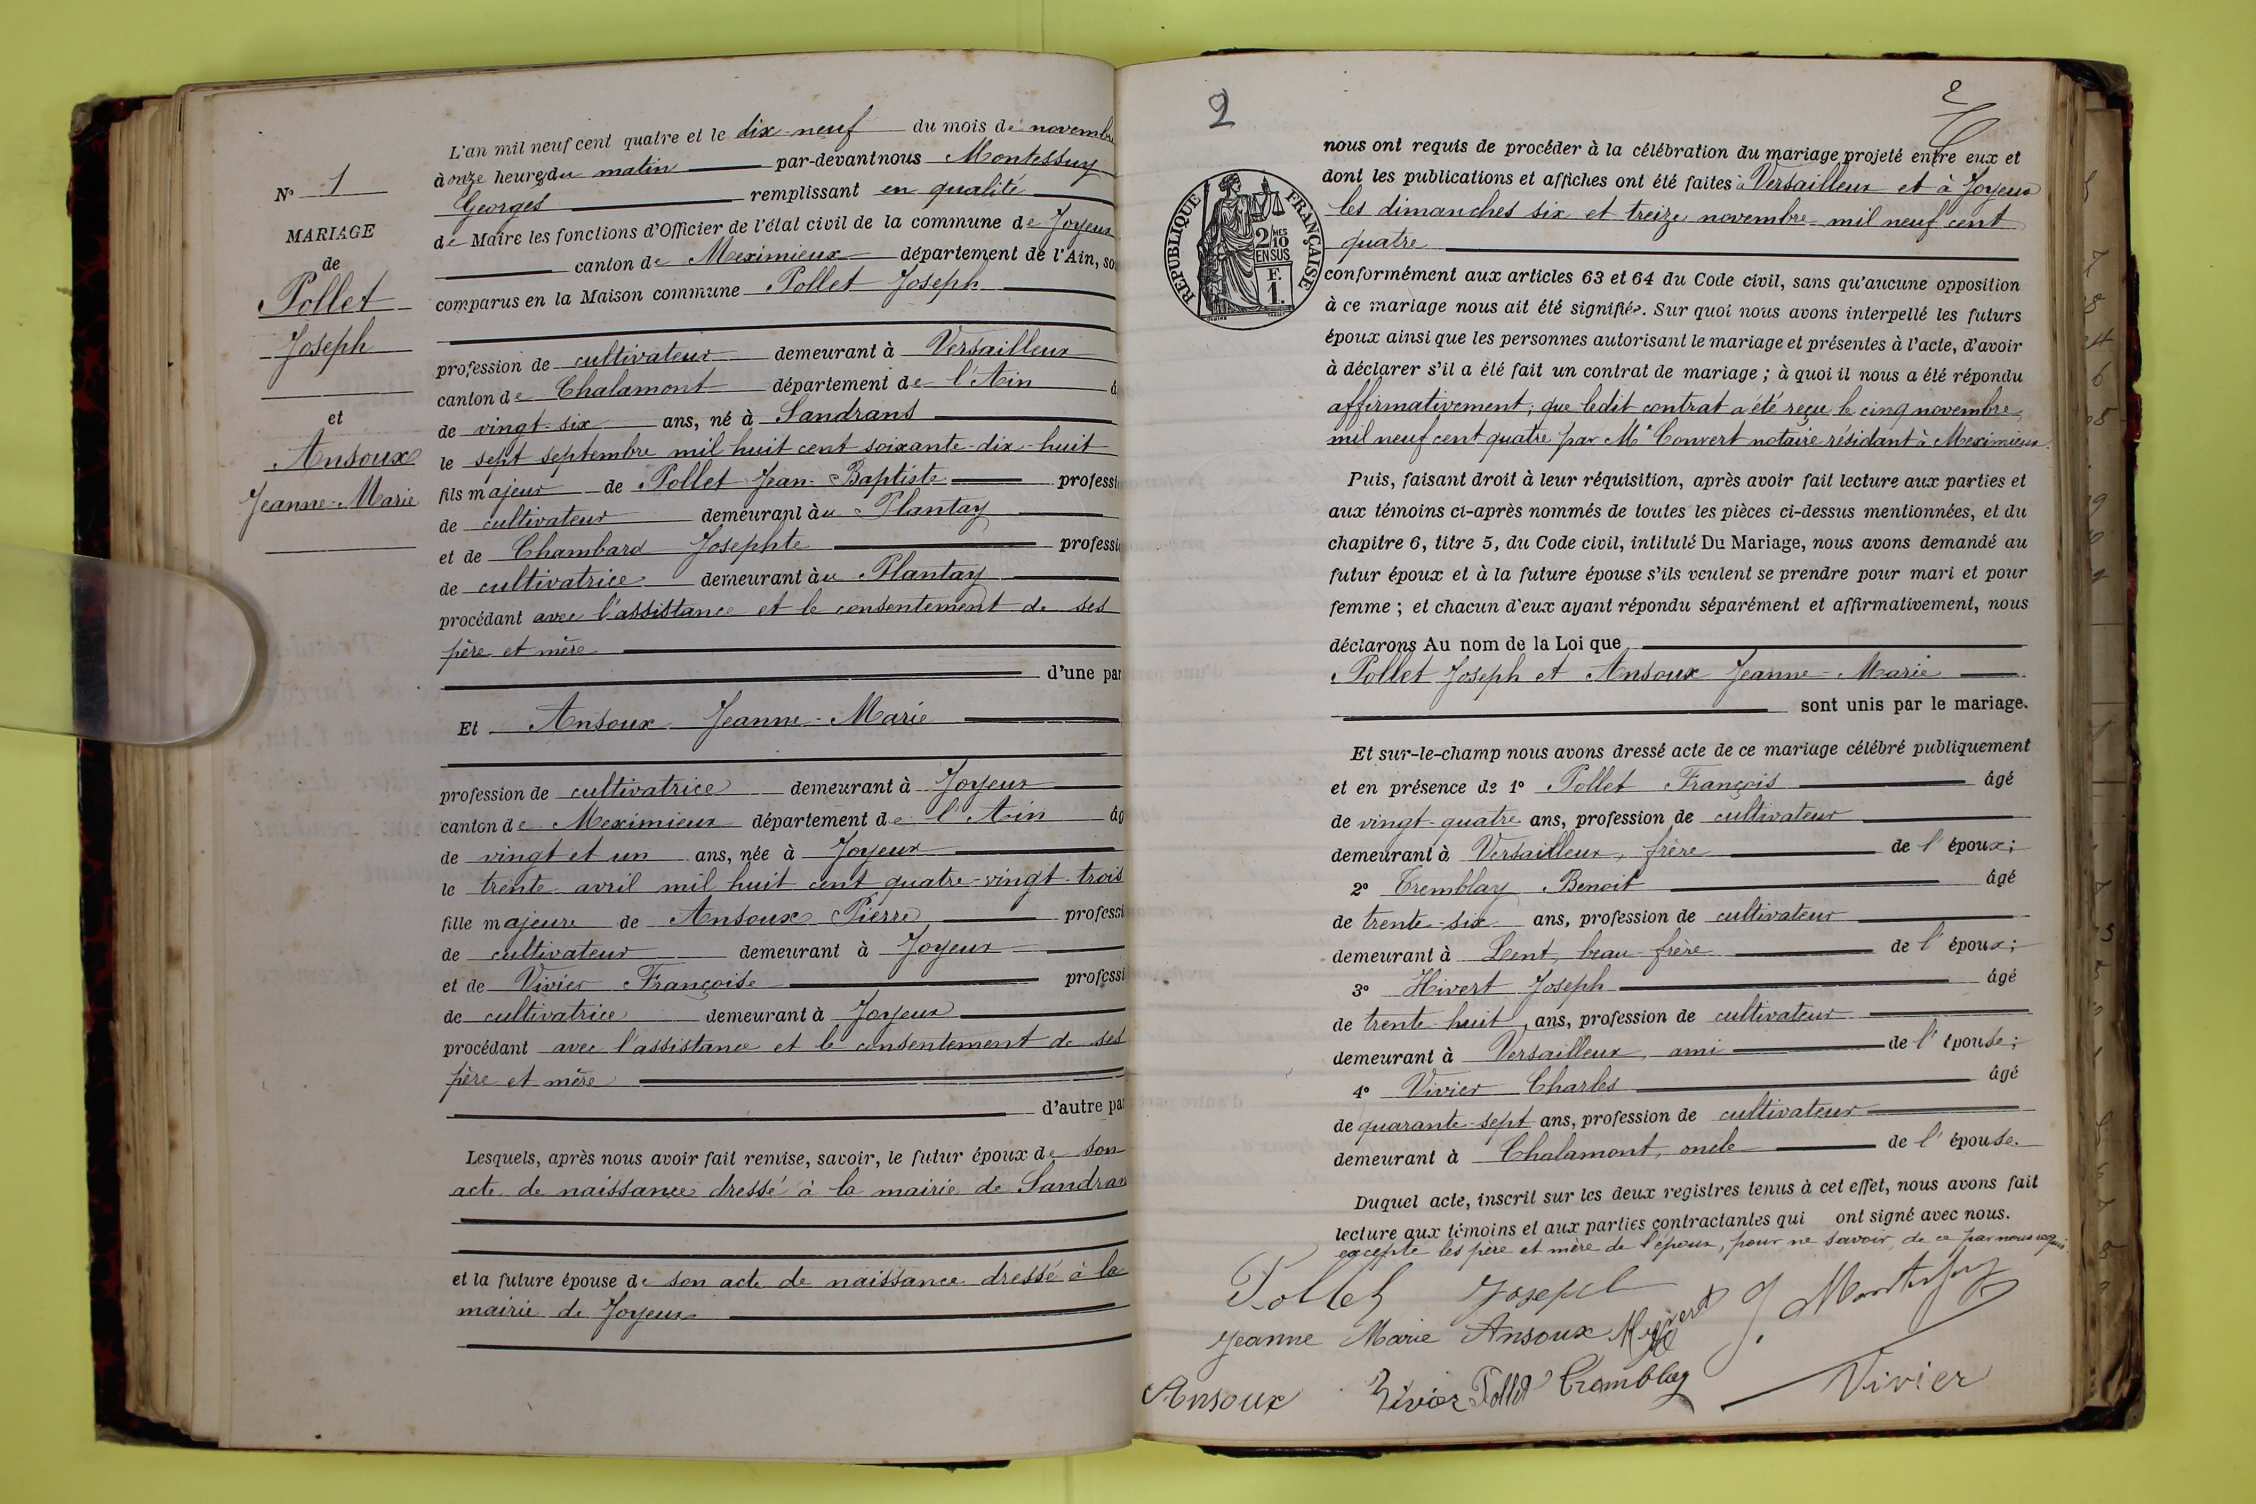 N° 1
MARIAGE
de
Pollet
Joseph
et
Ansoux
Jeanne-Marie
L'an mil neuf cent quatre et le dix-neuf du mois de novembre
à onze heures du matin par-devant nous Montessuy
Georges remplissant en qualité
de Maire les fonctions d'Officier de l'état civil de la commune de Joyeux
canton de Meximieux département de l'Ain, so
comparus en la Maison commune Pollet Joseph
profession de cultivateur demeurant à Versailleux
canton de Chalamont département de l'Ain â
de vingt-six ans, né à Sandrans
le sept septembre mil huit cent soixante-dix-huit
fils majeur de Pollet Jean-Baptiste professi
de cultivateur demeurant àu Plantay
et de Chambard Josephte professi
de cultivatrice demeurant àu Plantay
procédant avec l'assistance et le consentement de ses
père et mère
d'une par
Et Ansoux Jeanne-Marie
profession de cultivatrice demeurant à Joyeux
canton de Meximieux département de l'Ain âg
de vingt et un ans, née à Joyeux
le trente avril mil huit cent quatre-vingt-trois
fille majeure de Ansoux Pierre professi
de cultivateur demeurant à Joyeux
et de Vivier Françoise professi
de cultivatrice demeurant à Joyeux
procédant avec l'assistance et le consentement de ses
père et mère
d'autre par
Lesquels, après nous avoir fait remise, savoir, le futur époux de son
acte de naissance dressé à la mairie de Sandrans
et la future épouse de son acte de naissance dressé à la
mairie de Joyeux
2
2
RÉPUBLIQUE FRANÇAISE
2/10 MES
EN SUS
F.
1.
nous ont requis de procéder à la célébration du mariage projeté entre eux et
dont les publications et affiches ont été faites à Versailleux et à Joyeux
les dimanches six et treize novembre mil neuf cent
quatre
conformément aux articles 63 et 64 du Code civil, sans qu'aucune opposition
à ce mariage nous ait été signifiée. Sur quoi nous avons interpellé les futurs
époux ainsi que les personnes autorisant le mariage et présentes à l'acte, d'avoir
à déclarer s'il a été fait un contrat de mariage ; à quoi il nous a été répondu
affirmativement, que ledit contrat a été reçu le cinq novembre
mil neuf cent quatre par Me Convert notaire résidant à Meximieux.
Puis, faisant droit à leur réquisition, après avoir fait lecture aux parties et
aux témoins ci-après nommés de toutes les pièces ci-dessus mentionnées, et du
chapitre 6, titre 5, du Code civil, intitulé Du Mariage, nous avons demandé au
futur époux et à la future épouse s'ils veulent se prendre pour mari et pour
femme ; et chacun d'eux ayant répondu séparément et affirmativement, nous
déclarons Au nom de la Loi que
Pollet Joseph et Ansoux Jeanne-Marie
sont unis par le mariage.
Et sur-le-champ nous avons dressé acte de ce mariage célébré publiquement
et en présence de 1° Pollet François âgé
de vingt-quatre ans, profession de cultivateur
demeurant à Versailleux, frère de l'époux;
2° Tremblay Benoit âgé
de trente-six ans, profession de cultivateur
demeurant à Lent, beau-frère de l'époux;
3° Hivert Joseph âgé
de trente-huit ans, profession de cultivateur
demeurant à Versailleux, ami de l'épouse;
4° Vivier Charles âgé
de quarante-sept ans, profession de cultivateur
demeurant à Chalamont, oncle de l'épouse.
Duquel acte, inscrit sur les deux registres tenus à cet effet, nous avons fait
lecture aux témoins et aux parties contractantes qui ont signé avec nous.
excepté les père et mère de l'époux, pour ne savoir, de ce par nous requis
Pollet Joseph
J. Montessuy
Jeanne Marie Ansoux Hivert
Ansoux Vivier Pollet Tremblay Vivier